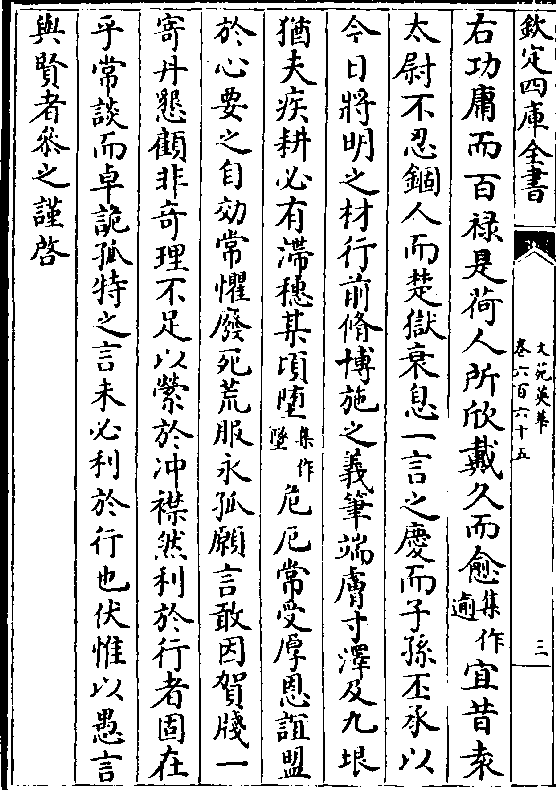 欽定四庫全書
文苑英華
卷六百六十五
三
右功庸而百禄是荷人所欣戴久而愈集作逾宜昔袁
太尉不忍錮人而楚獄衰息一言之慶而子孫丕承以
今日將明之材行前脩博施之義筆端膚寸澤及九垠
猶夫疾耕必有滯穗某頃墮集作墜危厄常受厚恩誼盟
於心要之自効常懼廢死荒服永孤願言敢因賀牋一
寄丹懇顧非奇理不足以縈於冲襟然利於行者固在
乎常談而卓詭孤特之言未必利於行也伏惟以愚言
與賢者叅之謹啓